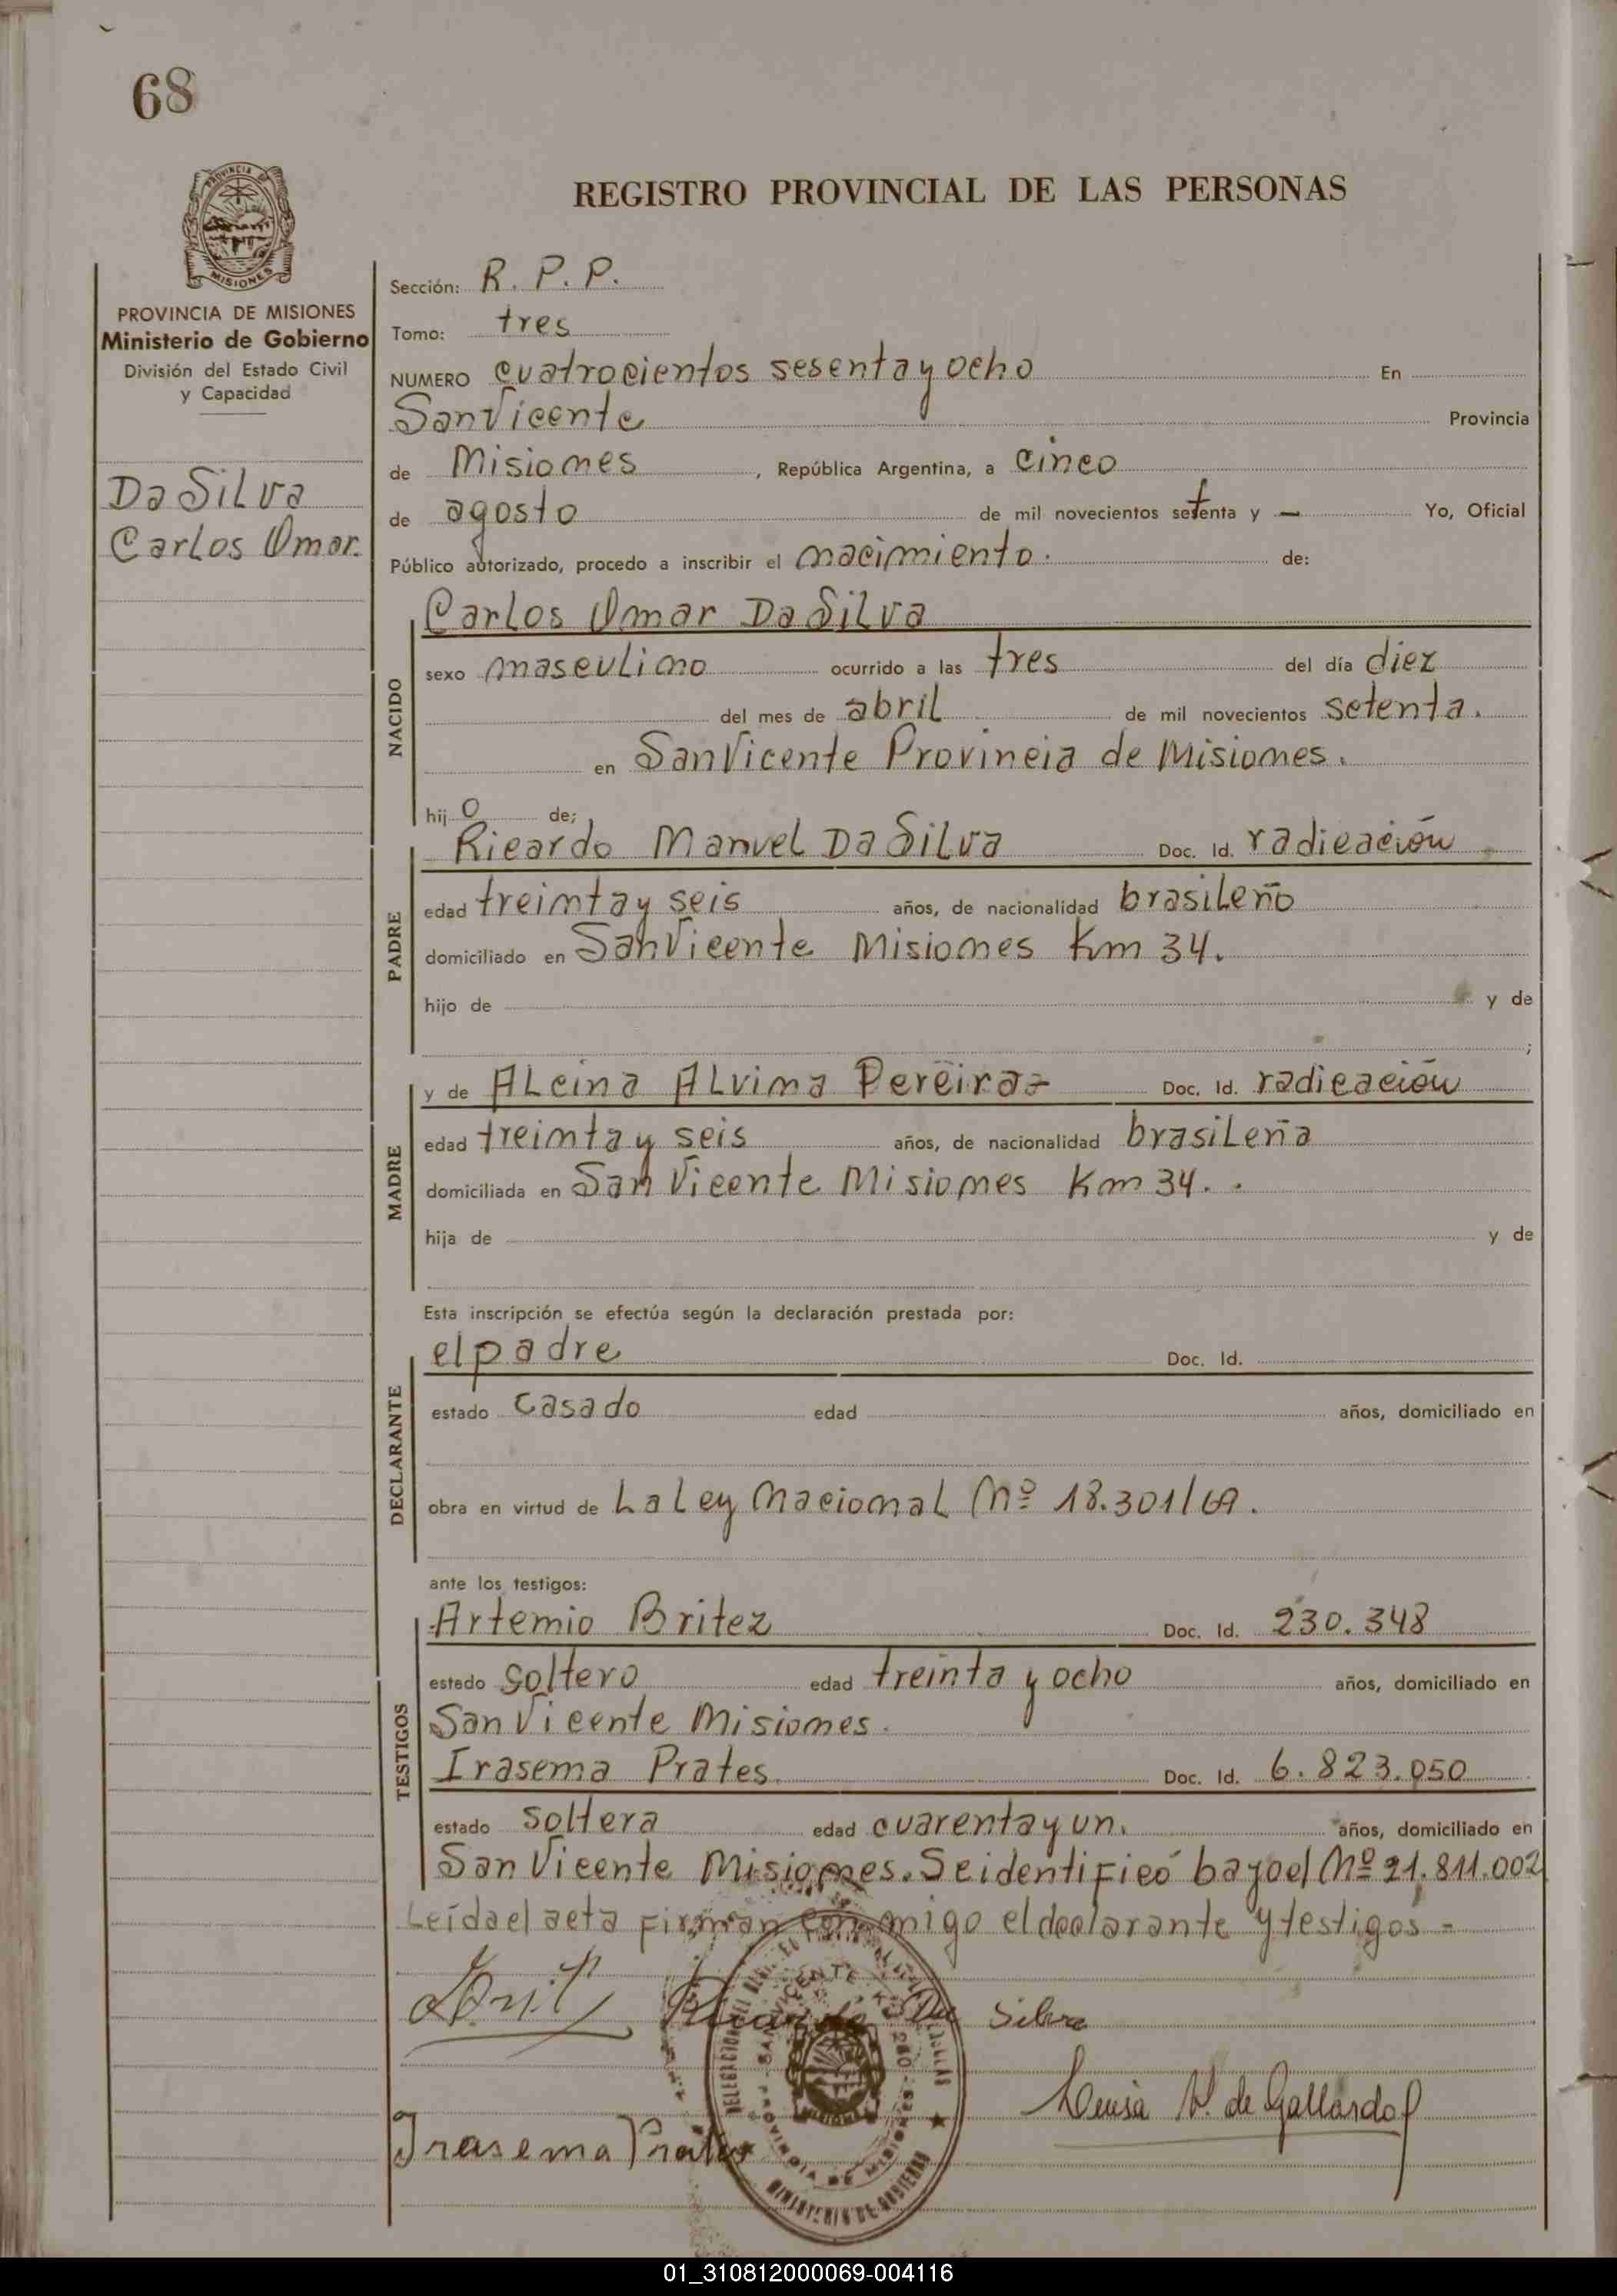 68
PROVINCIA DE
MISIONES
REGISTRO PROVINCIAL DE LAS PERSONAS
PROVINCIA DE MISIONES
Ministerio de Gobierno
División del Estado Civil
y Capacidad
Da Silva
Carlos Omar.
Sección: R. P. P.
Tomo: tres
NUMERO cuatrocientos sesenta y ocho En
San Vicente Provincia
de Misiones, República Argentina, a cinco
de agosto de mil novecientos setenta y — Yo, Oficial
Público autorizado, procedo a inscribir el nacimiento. de:
NACIDO
Carlos Omar Da Silva
sexo masculino ocurrido a las tres del día diez
del mes de abril de mil novecientos setenta.
en San Vicente Provincia de Misiones.
hijo de;
PADRE
Ricardo Manuel Da Silva Doc. Id. radicación
edad treinta y seis años, de nacionalidad brasileño
domiciliado en San Vicente Misiones Km 34.
hijo de y de
;
MADRE
y de Alcina Alvina Pereira- Doc. Id. radicación
edad treinta y seis años, de nacionalidad brasileña
domiciliada en San Vicente Misiones Km 34. .
hija de y de
Esta inscripción se efectúa según la declaración prestada por:
DECLARANTE
el padre Doc. Id.
estado casado edad años, domiciliado en
obra en virtud de La Ley Nacional Nº 18.301/69.
ante los testigos:
TESTIGOS
Artemio Britez Doc. Id. 230.348
estado soltero edad treinta y ocho años, domiciliado en
San Vicente Misiones.
Irasema Prates Doc. Id. 6.823.050
estado soltera edad cuarenta y un. años, domiciliado en
San Vicente Misiones. Se identificó bajo el Nº 21.811.002
Leída el acta firman conmigo el declarante y testigos -
Ricardo Da Silva
SAN VICENTE
PROVINCIA DE MISIONES
MINISTERIO DE GOBIERNO
de Gallardo
Irasema Prates
01_310812000069-004116